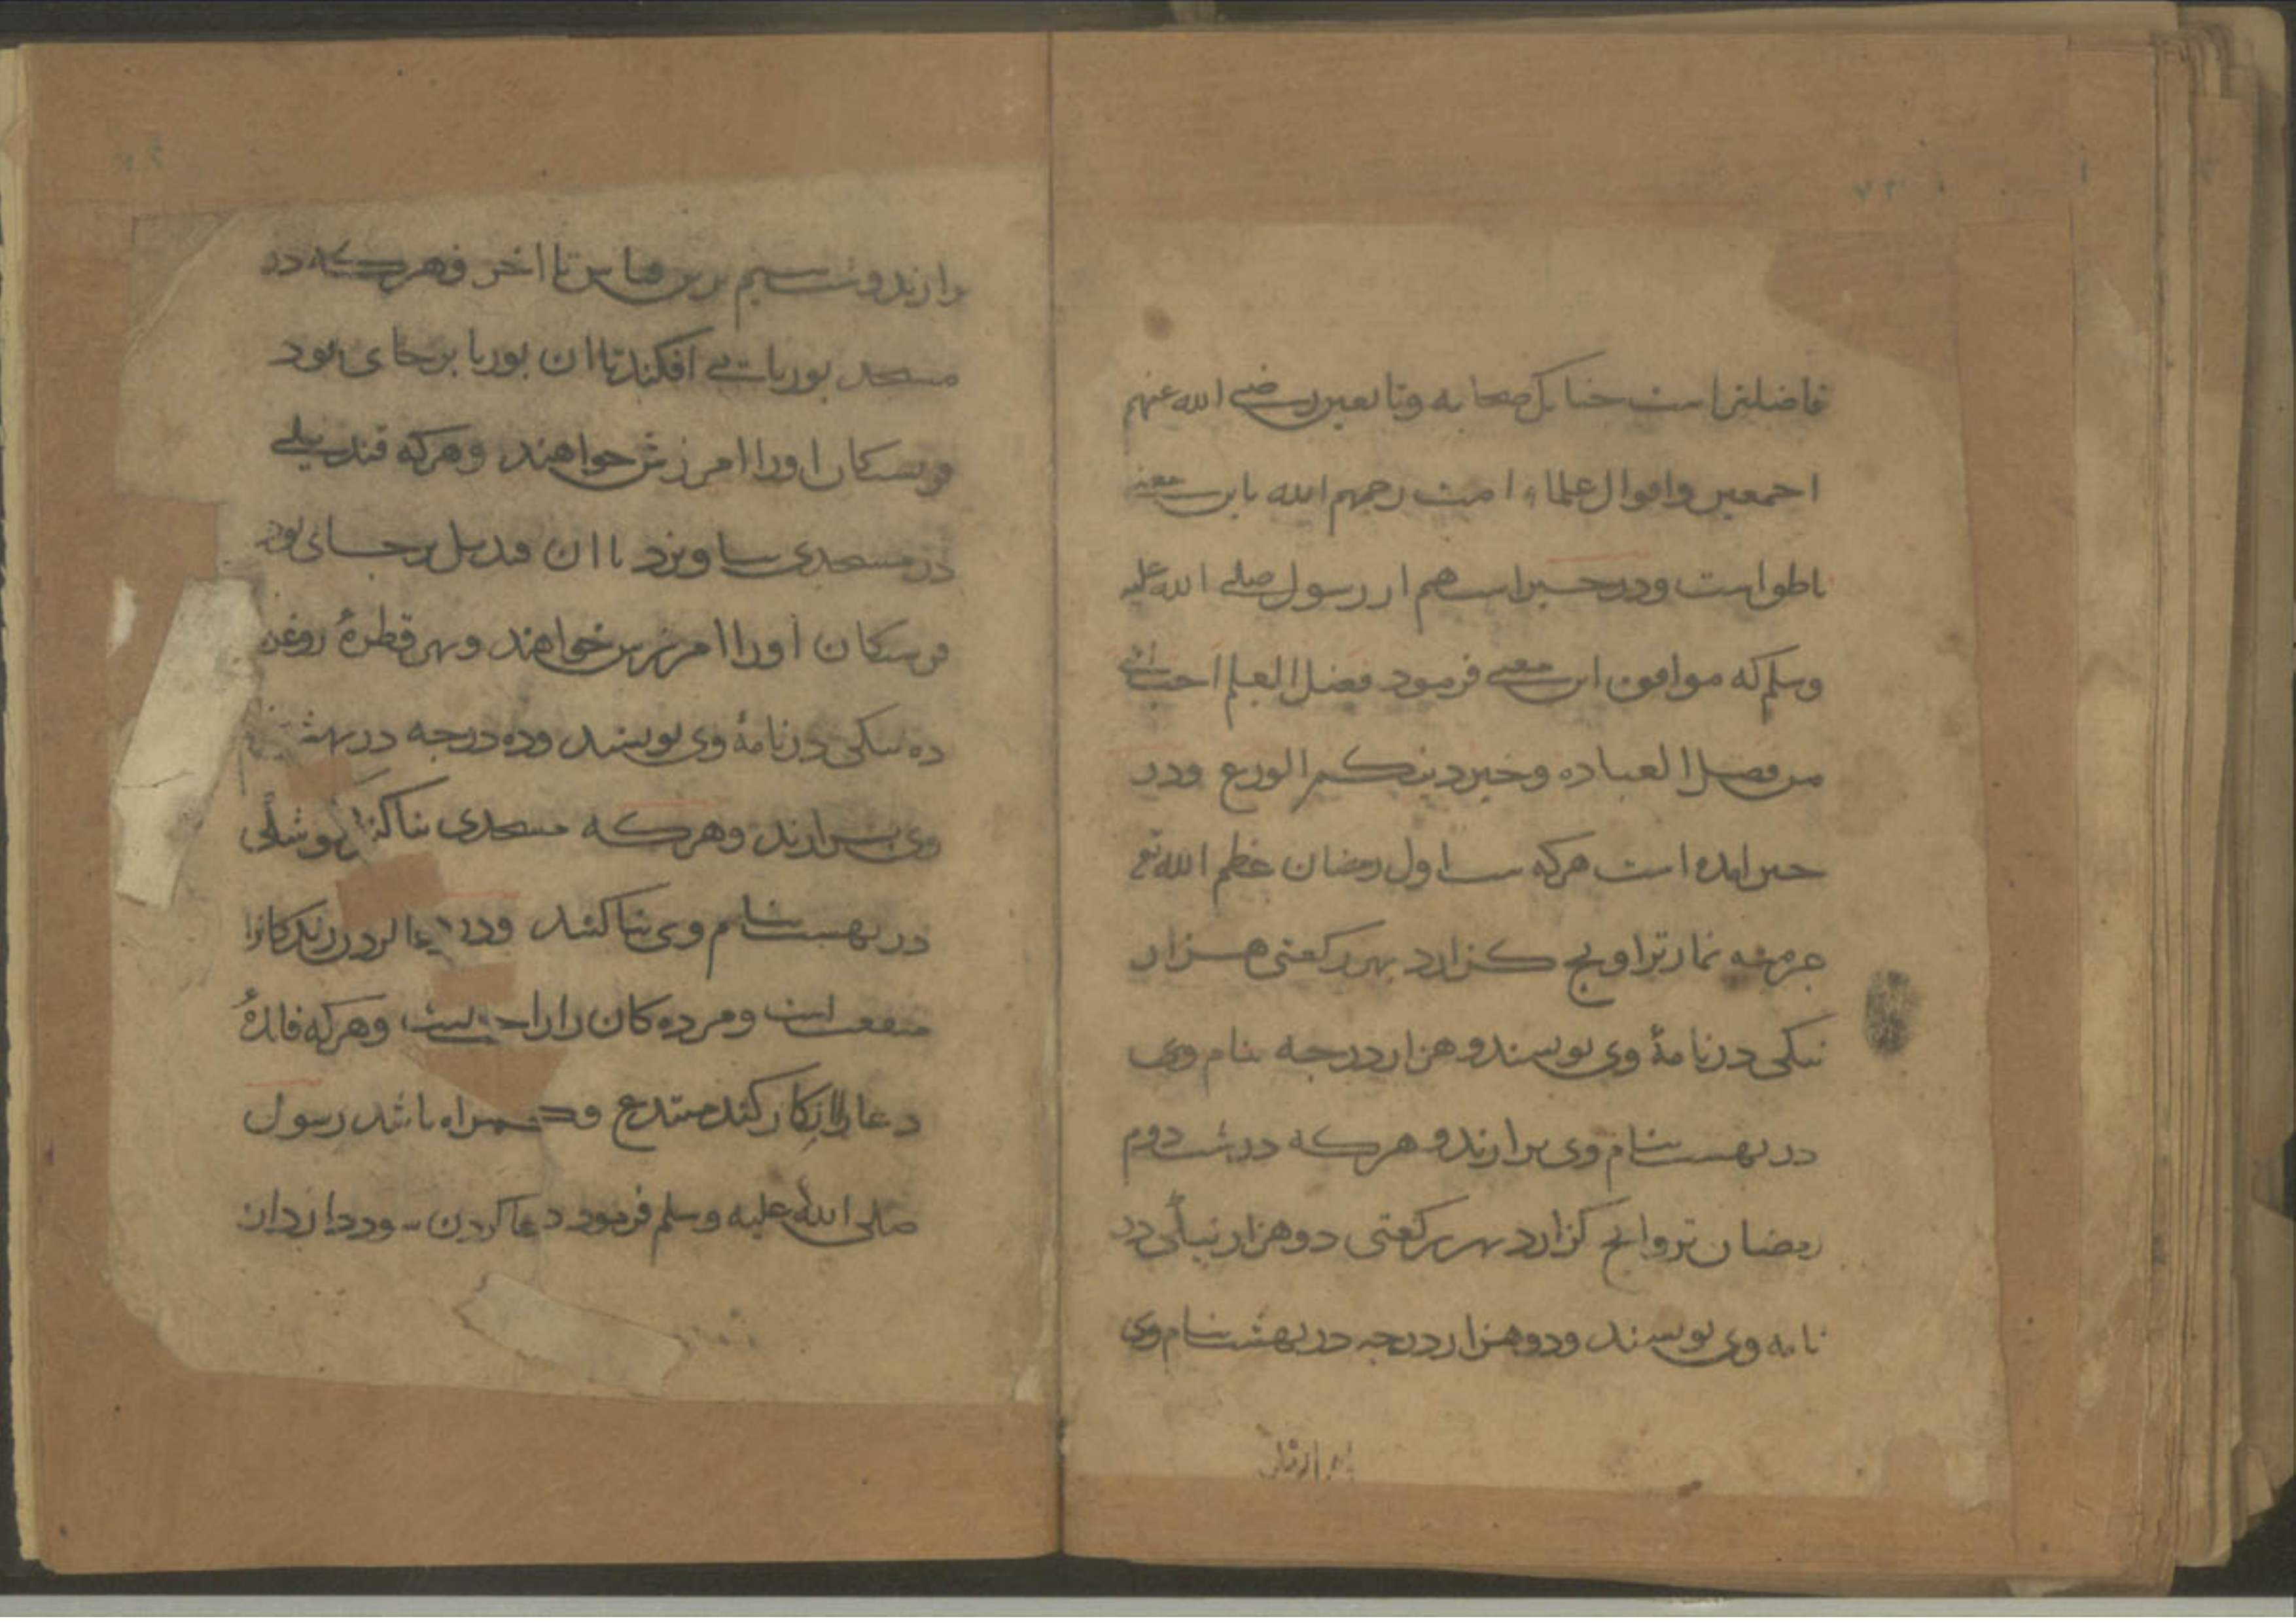 فاضلتر است چنانک صحابه وتابعین رضی الله عنهم
اجمعین واقوال علماء امت رحمهم الله باین معنی
ناطق است ودر خبر است هم از رسول صلی الله علیه
وسلم که موافق این معنی فرمود فضل العلم احب الی
من فضل العباده وخیر دینکم الورع ودر
خبر آمده است هرکه شب اول رمضان عظم الله تع
حرمته نماز تراویح کزارد بهر رکعتی هزار
نیکی در نامهٔ وی نویسند وهزار درجه بنام وی
در بهشت بنام وی برارند وهرکه در شب دوم
رمضان تروایح کزارد بهر رکعتی دوهزار نیکی در
نامه وی نویسند ودوهزار درجه در بهشت بنام وی
برارند وشب سیم برین قیاس تا اخر وهرکه در
مسجد بوریائی افکند تا ان بوریا برجای بود
فریستکان اورا امرزش خواهند وهرکه قندیلی
در مسجدی بیاویزد تا ان قندیل برجای بود
فریستکان اورا امرزش خواهند وبهر قطرهٔ روغن
ده نیکی در نامهٔ وی نویسند وده درجه در بهشت
وی برارند وهرکه مسجدی بنا کند کوشکی
در بهشت بنام وی بنا کنند ودر دعا کردن زندکانرا
منفعت است ومرده کان را راحت است وهرکه فائدهٔ
دعا را انکار کند مبتدع و کمراه باشد رسول
صلی الله علیه وسلم فرمود دعا کردن سود دارد از